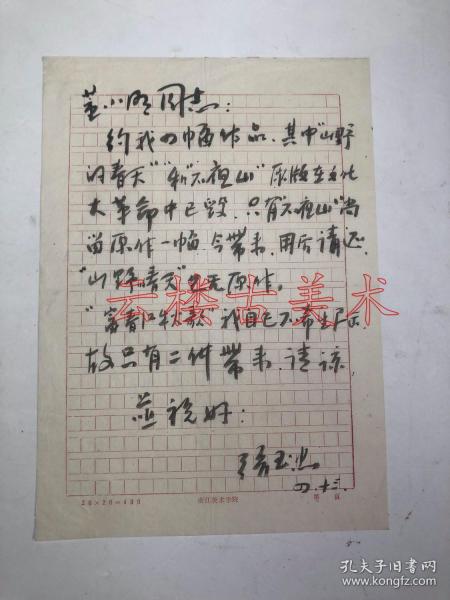 董小明同志：
约我四幅作品，其中“山野
的春天”和“不夜山”原版在文化
大革命中已毁，只有“不夜山”尚
留原作一幅，今带来，用后请还，
“山野春天”也无原作。
“富春江
我自己不希望展示
故只有二件带来，请谅
并祝好！
张玉忠
四.十三.
云楼古美术
20×20=400
浙江美术学院
第 页
孔夫子旧书网
www.kongfz.com